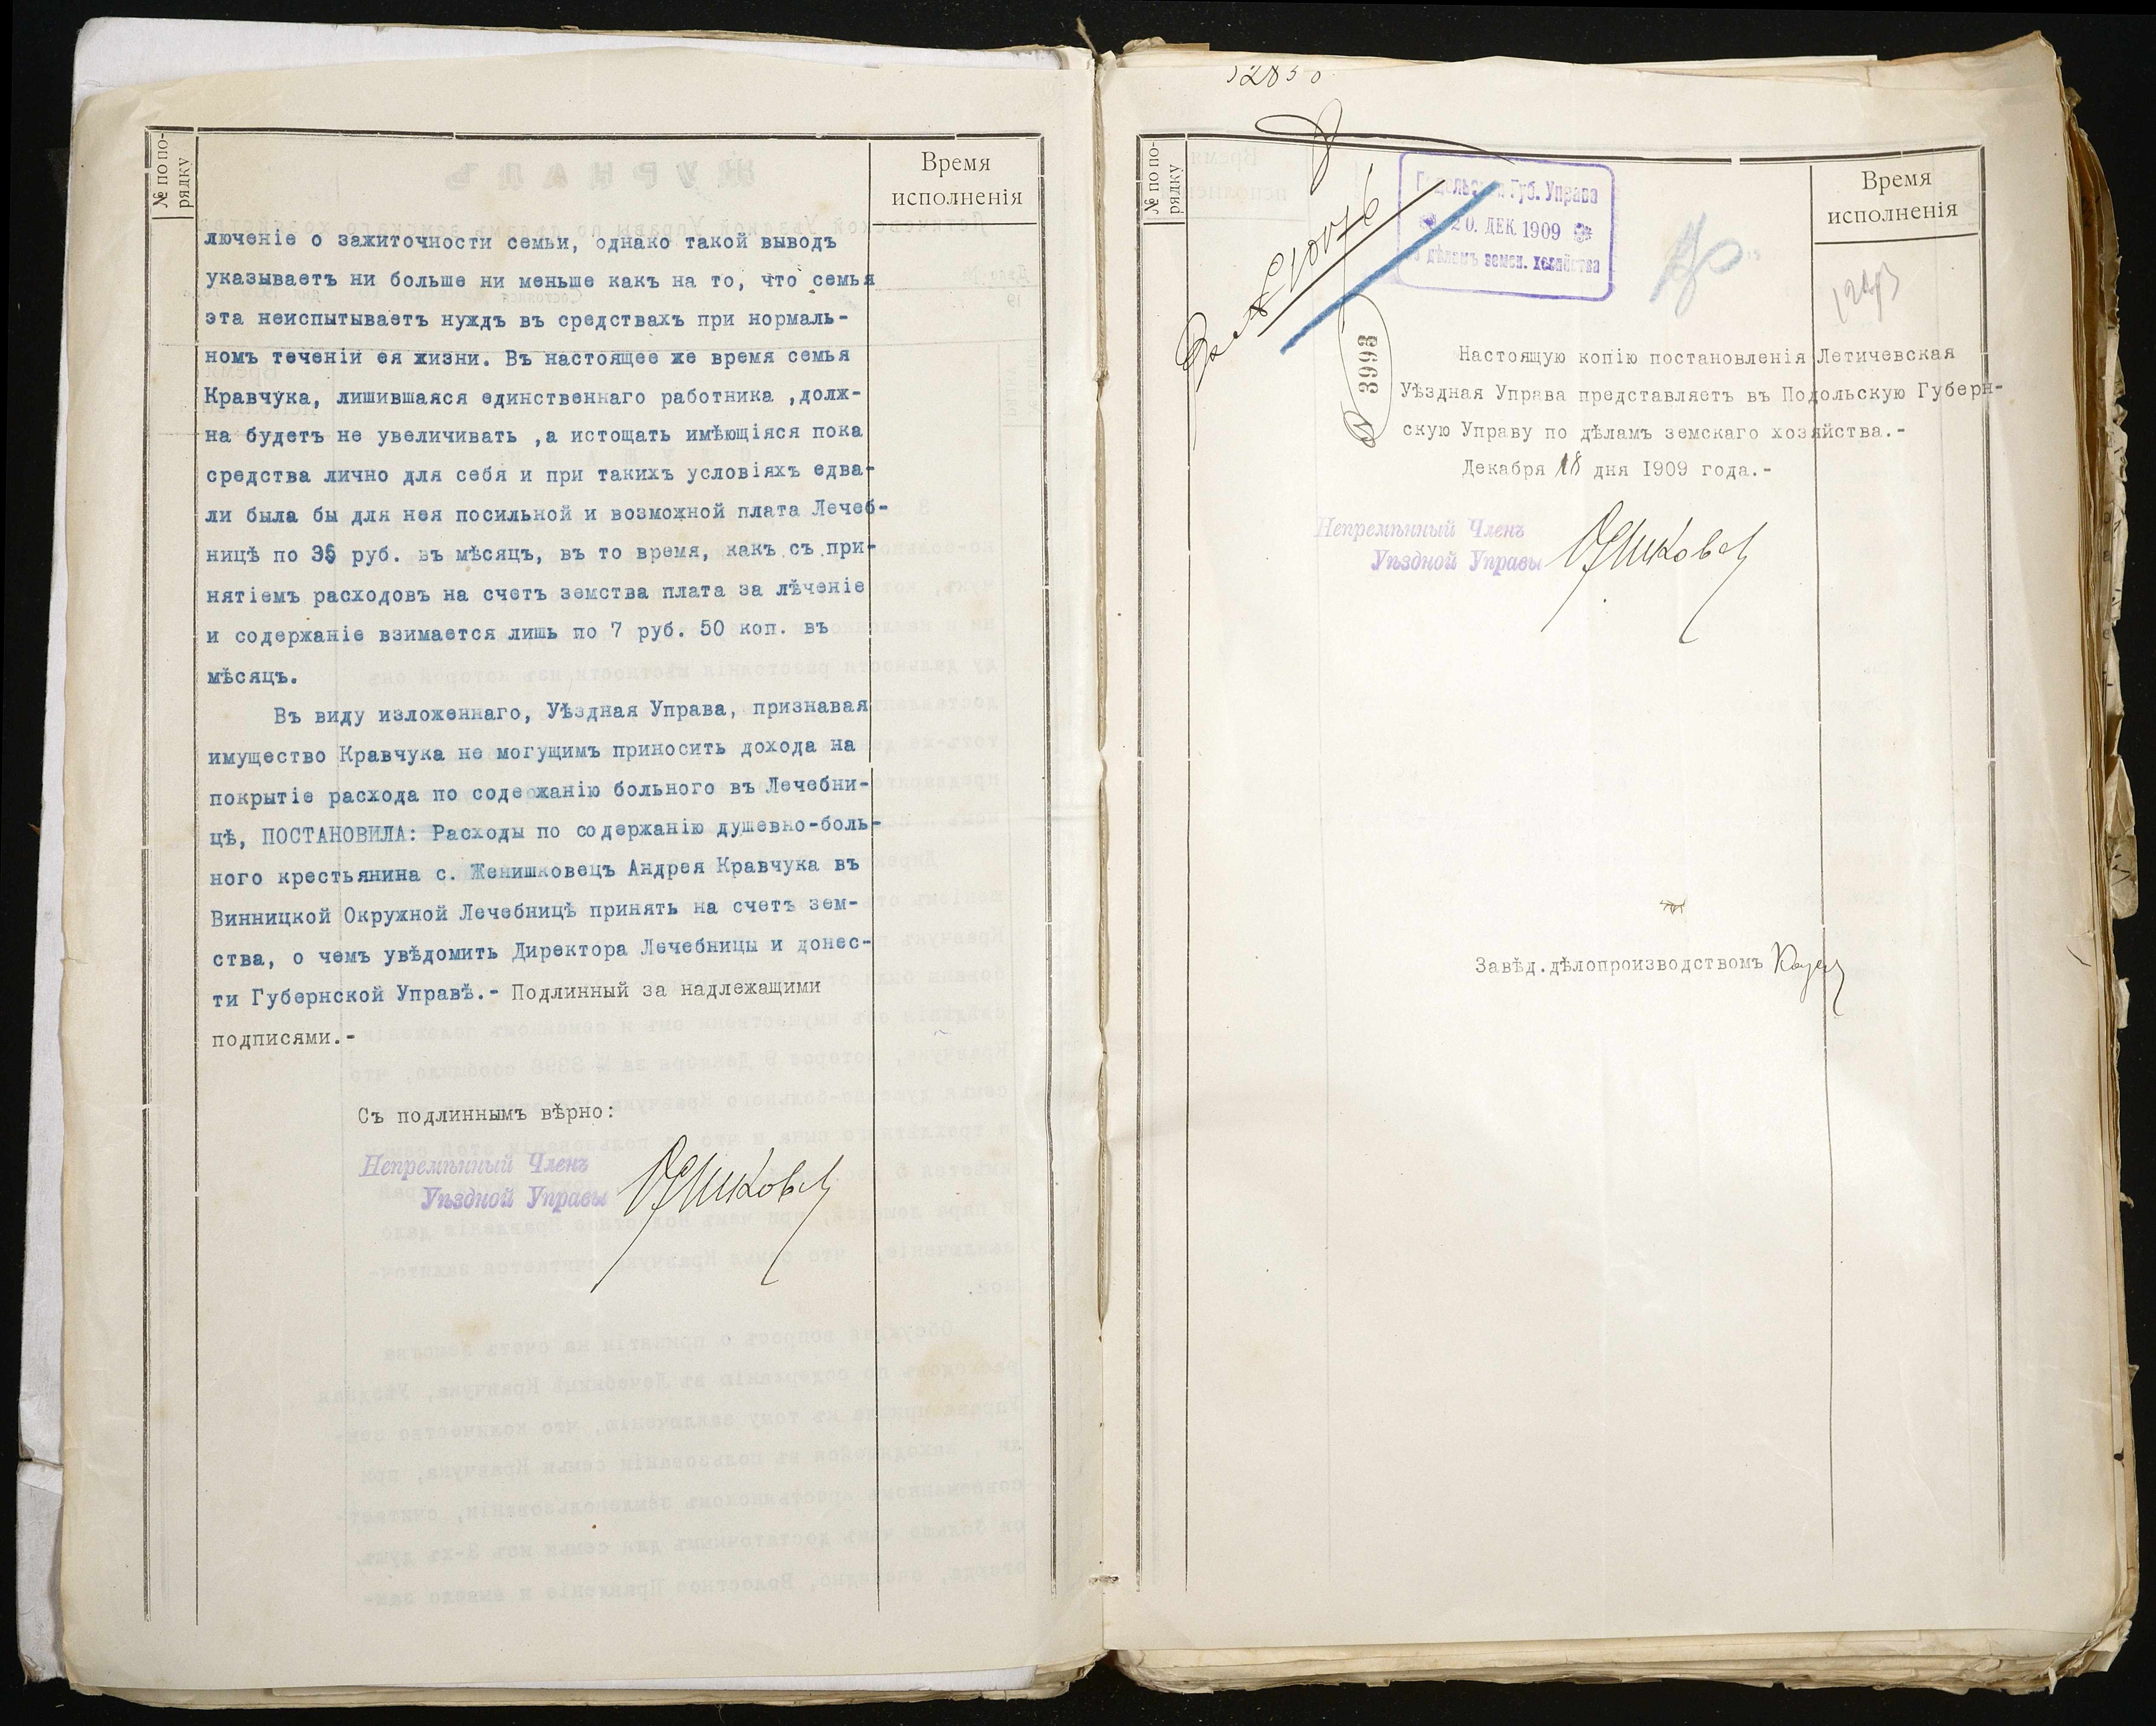 № по по-
рядку
Время
исполненія
люченіе о зажиточности семьи, однако такой выводъ
указываетъ ни больше ни меньше какъ на то, что семья
эта неиспытываетъ нуждъ въ средствахъ при нормаль-
номъ теченіи ея жизни. Въ настоящее же время семья
Кравчука, лишившаяся единственнаго работника ,долж-
на будетъ не увеличивать ,а истощать имѣющіяся пока
средства лично для себя и при такихъ условіяхъ едва-
ли была бы для нея посильной и возможной плата Лечеб-
ницѣ по руб. въ мѣсяцъ, въ то время, какъ съ при-
нятіемъ расходовъ на счетъ земства плата за лѣченіе
и содержаніе взимается лишь по 7 руб. 50 коп. въ
мѣсяцъ.
Въ виду изложеннаго, Уѣздная Управа, признавая
имущество Кравчука не могущимъ приносить дохода на
покрытіе расхода по соде жанію больного въ Лечебни-
цѣ, ПОСТАНОВИЛА: Расходы по содержанію душевно-боль-
ного крестьянина с. Женишковецъ Андрея Кравчука въ
Винницкой Окружной Лечебницѣ принять на счетъ зем-
ства, о чемъ увѣдомить Директора Лечебницы и донес-
ти Губернской Управѣ.- Подлинный за надлежащими
подписями.-
Съ подлиннымъ вѣрно:
Непремѣнный Членъ
Уѣздной Управы
№ по по-
рядку
Время
исполненія
Подольская Губ. Управа
20. ДЕК. 1909
по дѣламъ земск. хозяйства
№ 3993
Настоящую копію постановленія Летичевская
Уѣздная Управа представляетъ въ Подольскую Губерн-
скую Управу по дѣламъ земскаго хозяйства.-
Декабря 18 дня 1909 года.-
Непремѣнный Членъ
Уѣздной Управы
Завѣд.дѣлопроизводствомъ